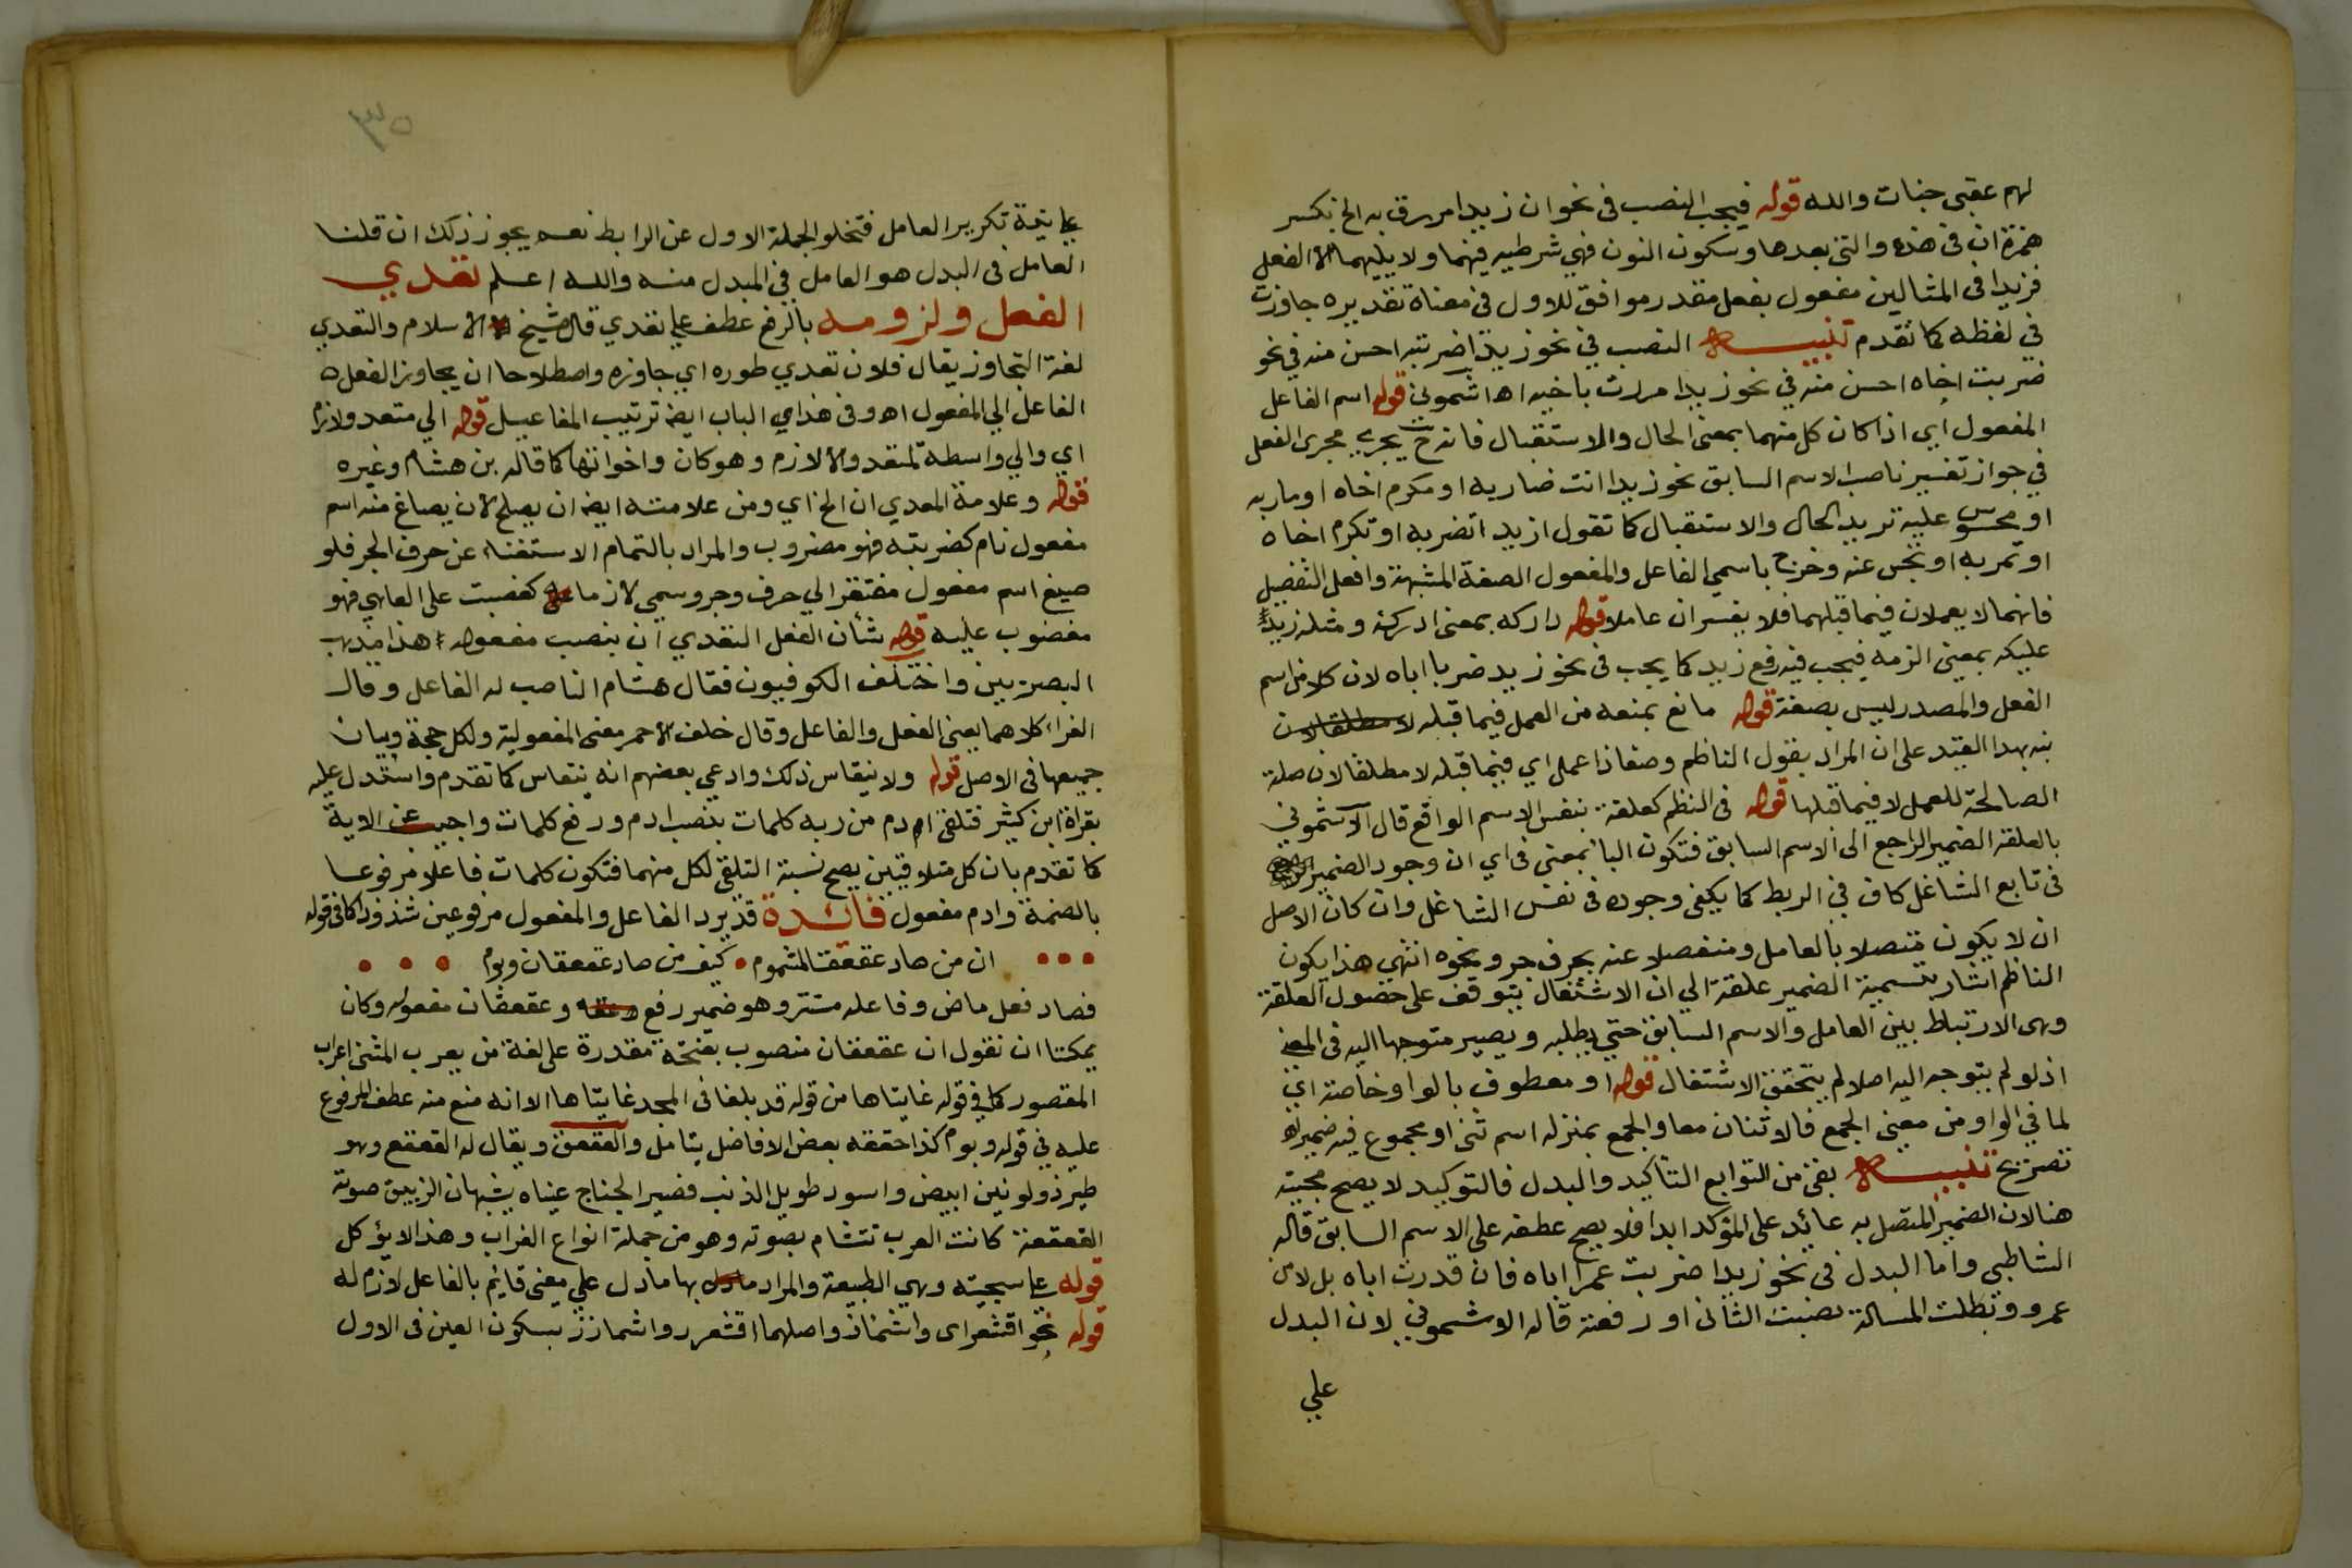 لهم عقبى جنات والله قوله فيجب النصب فى نحو ان زيدا مررت به الخ بكسر
همزة ان فى هذه والتى بعدها وسكون النون فهي شرطيه فيهما ولا يليهما الا الفعل
فزيدا فى المثالين مفعول بفعل مقدر موافق للاول فى معناه تقديره جاوزت
في لفظه كما تقدم تنبيه النصب في نحو زيدا ضربته احسن منه في نحو
ضربت اخاه احسن منه في نحو زيدا مررت باخيه اه اشمونى قوله اسم الفاعل
المفعول اي اذا كان كل منهما بمعنى الحال والاستقبال فانه ح يجرى مجرى الفعل
في جواز تفسير ناصب الاسم السابق نحو زيدا انت ضاربه او مكرم اخاه او مار به
او محبوس عليه تريد الحال والاستقبال كما تقول ازيد اتضربه او تكرم اخاه
او تمر به او تحبس عنه وخرج باسمي الفاعل والمفعول الصفة المشبهة وافعل التفضيل
فانهما لا يعملان فيما قبلهما فلا يفسران عاملا قوله داركه بمعنى ادركه ومثله زيد
عليكه بمعنى الزمه فيجب فيه رفع زيد كما يجب فى نحو زيد ضربا اباه لان كلا من اسم
الفعل والمصدر ليس بصفة قوله مانع يمنعه من العمل فيما قبله لا مطلقا لان
نبه بهذا القيد على ان المراد بقول الناظم وصفا ذا عمل اي فيما قبله لا مطلقا لان صلة
الصالحة للعمل لا فيما قبلها قوله فى النظم كعلقة بنفس الاسم الواقع قال الاشموني
بالعلقة الضمير الراجع الى الاسم السابق فتكون البا بمعنى فى اي ان وجود الضمير
فى تابع الشاغل كاف في الربط كما يكفى وجوده فى نفس الشاغل وان كان الاصل
ان لا يكون متصلا بالعامل ومنفصلا عنه بحرف جر ونحوه انتهى هذا يكون
الناظم اشار بتسمية الضمير علقة الي ان الاشتغال يتوقف على حصول العلقة
وهى الارتباط بين العامل والاسم السابق حتي يطلبه ويصير متوجها اليه فى المعنى
اذ لو لم يتوجه اليه اصلا لم يتحقق الاشتغال قوله او معطوف بالواو خاصة اي
لما في الواو من معنى الجمع فالاثنان معا والجمع بمنزله اسم ثنى او مجموع فيه ضمير اه
تصريح تنبيه بقى من التوابع التاكيد والبدل فالتوكيد لا يصح مجيئه
هنا لان الضمير المتصل به عائد على المؤكد ابدا فلا يصح عطفه على الاسم السابق قاله
الشاطبي واما البدل فى نحو زيدا ضربت عمرا اباه فان قدرت اباه بدلا من
عمرو وبطلت المسالة نصبت الثانى او رفعته قاله الاشموني لان البدل
علي
علي نية تكرير العامل فتخلو الجملة الاول عن الرابط نعم يجوز ذلك ان قلنا
العامل فى البدل هو العامل في المبدل منه والله اعلم تعدي
الفعل ولزومه بالرفع عطف علي تعدي قال شيخ الاسلام والتعدي
لغة التجاوز يقال فلان تعدي طوره اي جاوزه واصطلاحا ان يجاوز الفعل
الفاعل الي المفعول اه وفى هذا اي الباب ايضا ترتيب المفاعيل قوله الي متعد ولازم
اي والي واسطة لا متعد ولا لازم وهو كان واخواتها كما قاله بن هشام وغيره
قوله وعلامة المعدي ان الخ اي ومن علامته ايضا ان يصلح لان يصاغ منه اسم
مفعول تام كضربته فهو مضروب والمراد بالتمام الاستغناء عن حرف الجر فلو
صيغ اسم مفعول مفتقر الي حرف وجر وسمي لازما كغضبت على العاصي فهو
مغضوب عليه قوله شأن الفعل التعدي ان ينصب مفعوله هذا مذهب
البصريين واختلف الكوفيون فقال هشام الناصب له الفاعل وقال
الفرا كلاهما يعنى الفعل والفاعل وقال خلف الاحمر معنى المفعولية ولكل حجة وبيان
جميعها فى الاصل قوله ولا ينقاس ذلك وادعي بعضهم انه ينقاس كما تقدم واستدل عليه
بقراة ابن كثير فتلقى ادم من ربه كلمات بنصب ادم ورفع كلمات واجيب عن الاية
كما تقدم بان كل متلاقيين يصح نسبة التلقى لكل منهما فتكون كلمات فاعلا مرفوعا
بالضمة وادم مفعول فائدة قد يرد الفاعل والمفعول مرفوعين شذوذا كما فى قوله
ان من صاد عقعقا لمشوم كيف من صاد عقعقان وبوم
فصاد فعل ماض وفاعله مستتر وهو ضمير رفع وعقعقان مفعوله وكان
يمكننا ان نقول ان عقعقان منصوب بفتحة مقدرة على لغة من يعرب المثنى اعراب
المقصور كما في قوله غايتاها من قوله قد بلغا فى المجد غايتاها الا انه منع منه عطف المرفوع
عليه في قوله وبوم كذا حققه بعض الافاضل بتامل والعقعق ويقال له القعقع وهو
طير ذو لونين ابيض واسود طويل الذنب قصير الجناح عيناه يشبهان الزيبق صوته
القعقعة كانت العرب تتشام بصوته وهو من جملة انواع الغراب وهذا لا يؤكل
قوله علي سجيته وهي الطبيعة والمراد بها ما دل علي معنى قايم بالفاعل لازم له
قوله نحو اقشعر اى واشماز واصلهما اقشعرر واشمازز بسكون العين فى الاول